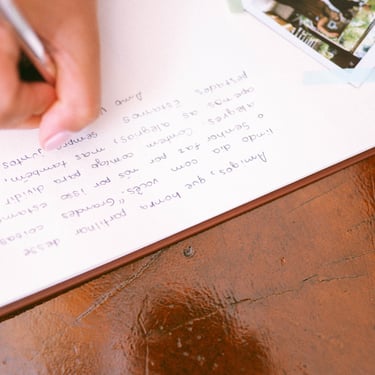 Amigos, que honra partilhar desse
lindo dia com vocês. "Grandes coisas
o Senhor faz por nós por isso estam
alegres. Contem comigo para dividir
apenas as alegrias, mas também,
Estarmos sempre juntos
Amo v